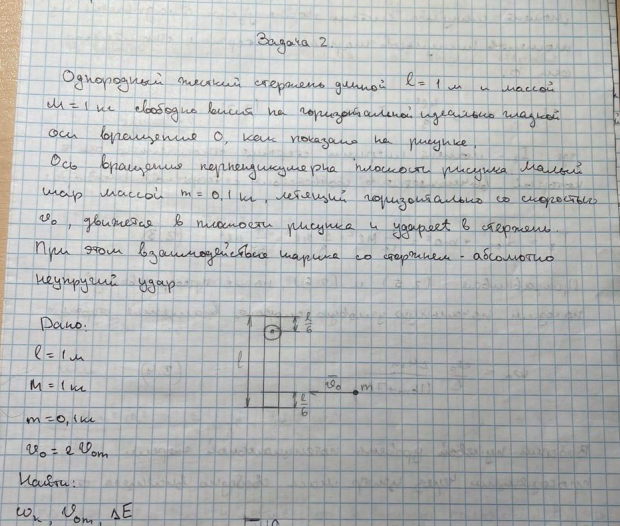 Задача 2.
Однородный жесткий стержень длиной l = 1 м и массой
M = 1 кг свободно висит на горизонтальной идеально гладкой
оси вращения O, как показано на рисунке.
Ось вращения перпендикулярна плоскости рисунка. Малый
шар массой m = 0,1 кг, летящий горизонтально со скоростью
v₀, движется в плоскости рисунка и ударяет в стержень.
При этом взаимодействие шарика со стержнем - абсолютно
неупругий удар
Дано:
l = 1 м
M = 1 кг
m = 0,1 кг
v₀ = 2 v₀m
Найти:
ωк, v₀m, ΔE
l
l/6
l/6
v̄₀
m